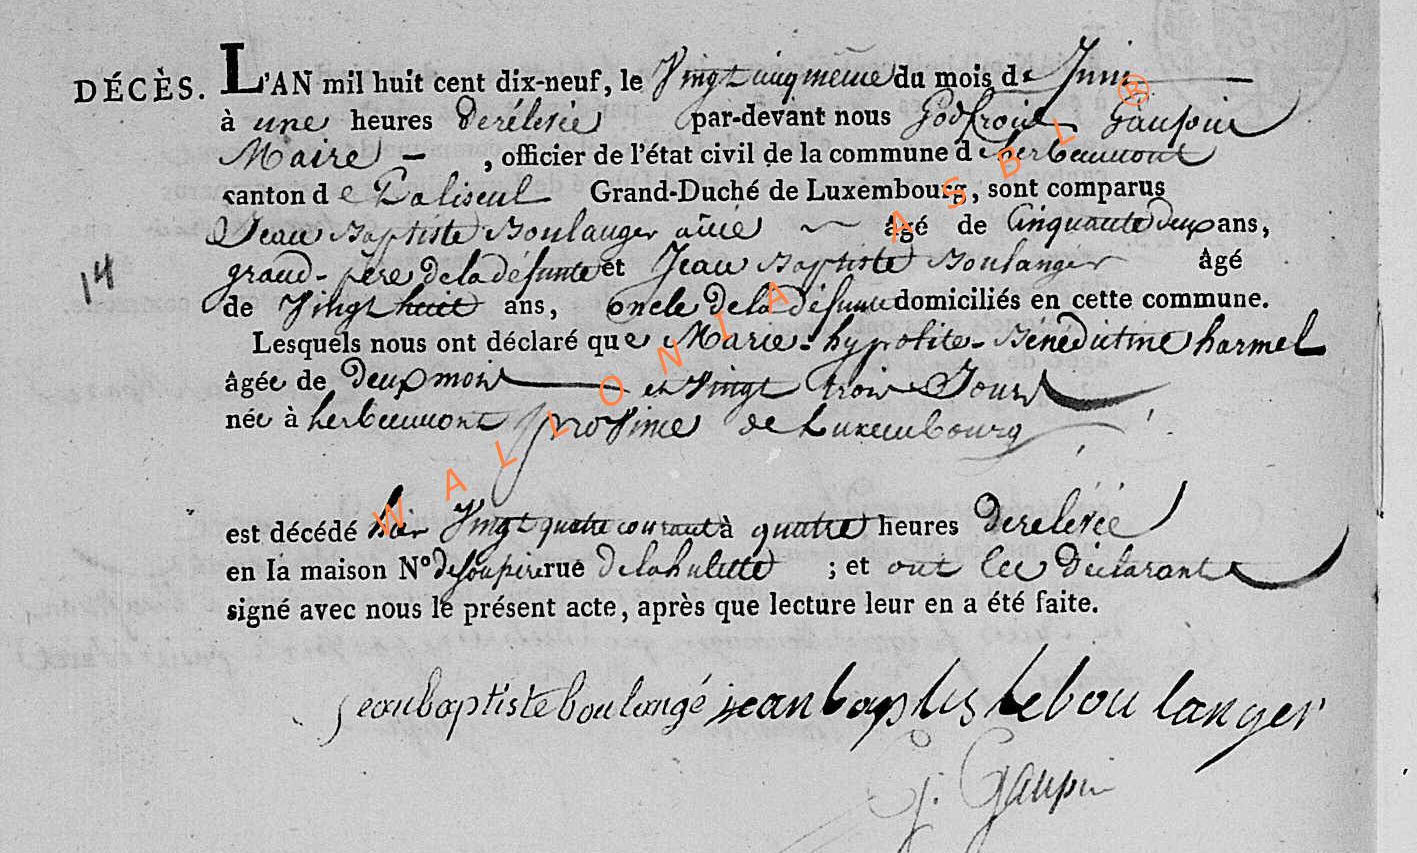 DÉCÈS. L'AN mil huit cent dix-neuf, le Vingt cinqmême du mois de Juin
à une heures derélevée par-devant nous Godfroid Gaupin
Maire - , officier de l'état civil de la commune d'herbeumont
canton de Paliseul Grand-Duché de Luxembourg, sont comparus
Jean Baptiste Boulanger aîné âgé de Cinquante deux ans,
14
grand-père dela défunte et Jean Baptiste Boulanger âgé
de Vingt huit ans, oncle dela défunte domiciliés en cette commune.
Lesquels nous ont déclaré que Marie-hypolite-Bénédictine harmel
âgée de deux mois et Vingt trois Jours
née à herbeumont province de Luxembourg
est décédé hier Vingt quatre courant à quatre heures derelevée
en la maison N° desonpère rue dela hulette ; et ont les déclarants
signé avec nous le présent acte, après que lecture leur en a été faite.
jeanbaptisteboulangé jean baptiste boulanger
G. Gaupin
WALLONIA ASBL ®